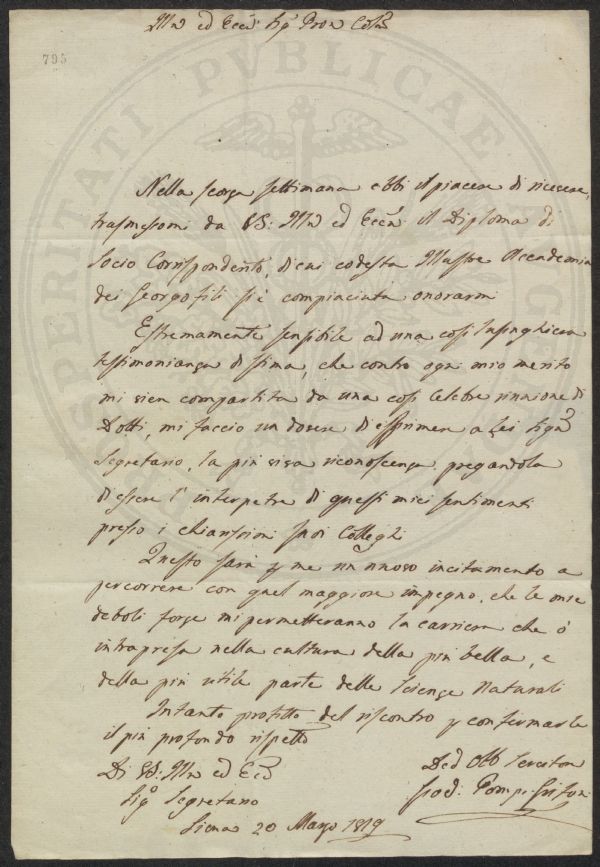 Illmo ed Eccmo Sigr Pron Colmo
795
PROSPERITATI PVBLICAE AVGENDAE
Nella scorsa settimana ebbi il piacere di ricevere,
trasmessomi da VS: Illma ed Eccma il Diploma di
Socio Corrispondente, di cui codesta Illustre Accademia
dei Georgofili si è compiaciuta onorarmi
Estremamente sensibile ad una così lusinghiera
testimonianza di stima, che contro ogni mio merito
mi vien compartita da una così celebre riunione di
Dotti, mi faccio un dovere di esprimere a Lei Sigre
Segretario, la più viva riconoscenza, pregandola
di essere l'interpetre di questi miei sentimenti
presso i chiarissimi suoi Colleghi
Questo sarà p me un nuovo incitamento a
percorrere con quel maggiore impegno, che le mie
deboli forze mi permetteranno la carriera che ò
intrapresa nella cultura della più bella, e
della più utile parte delle Scienze Naturali
Intanto profitto del riscontro p confermarle
il più profondo rispetto
Di VS: Illma ed Eccma
Sigr Segretario
Siena 20 Marzo 1819
Ded Obb Servitore
Pomp: